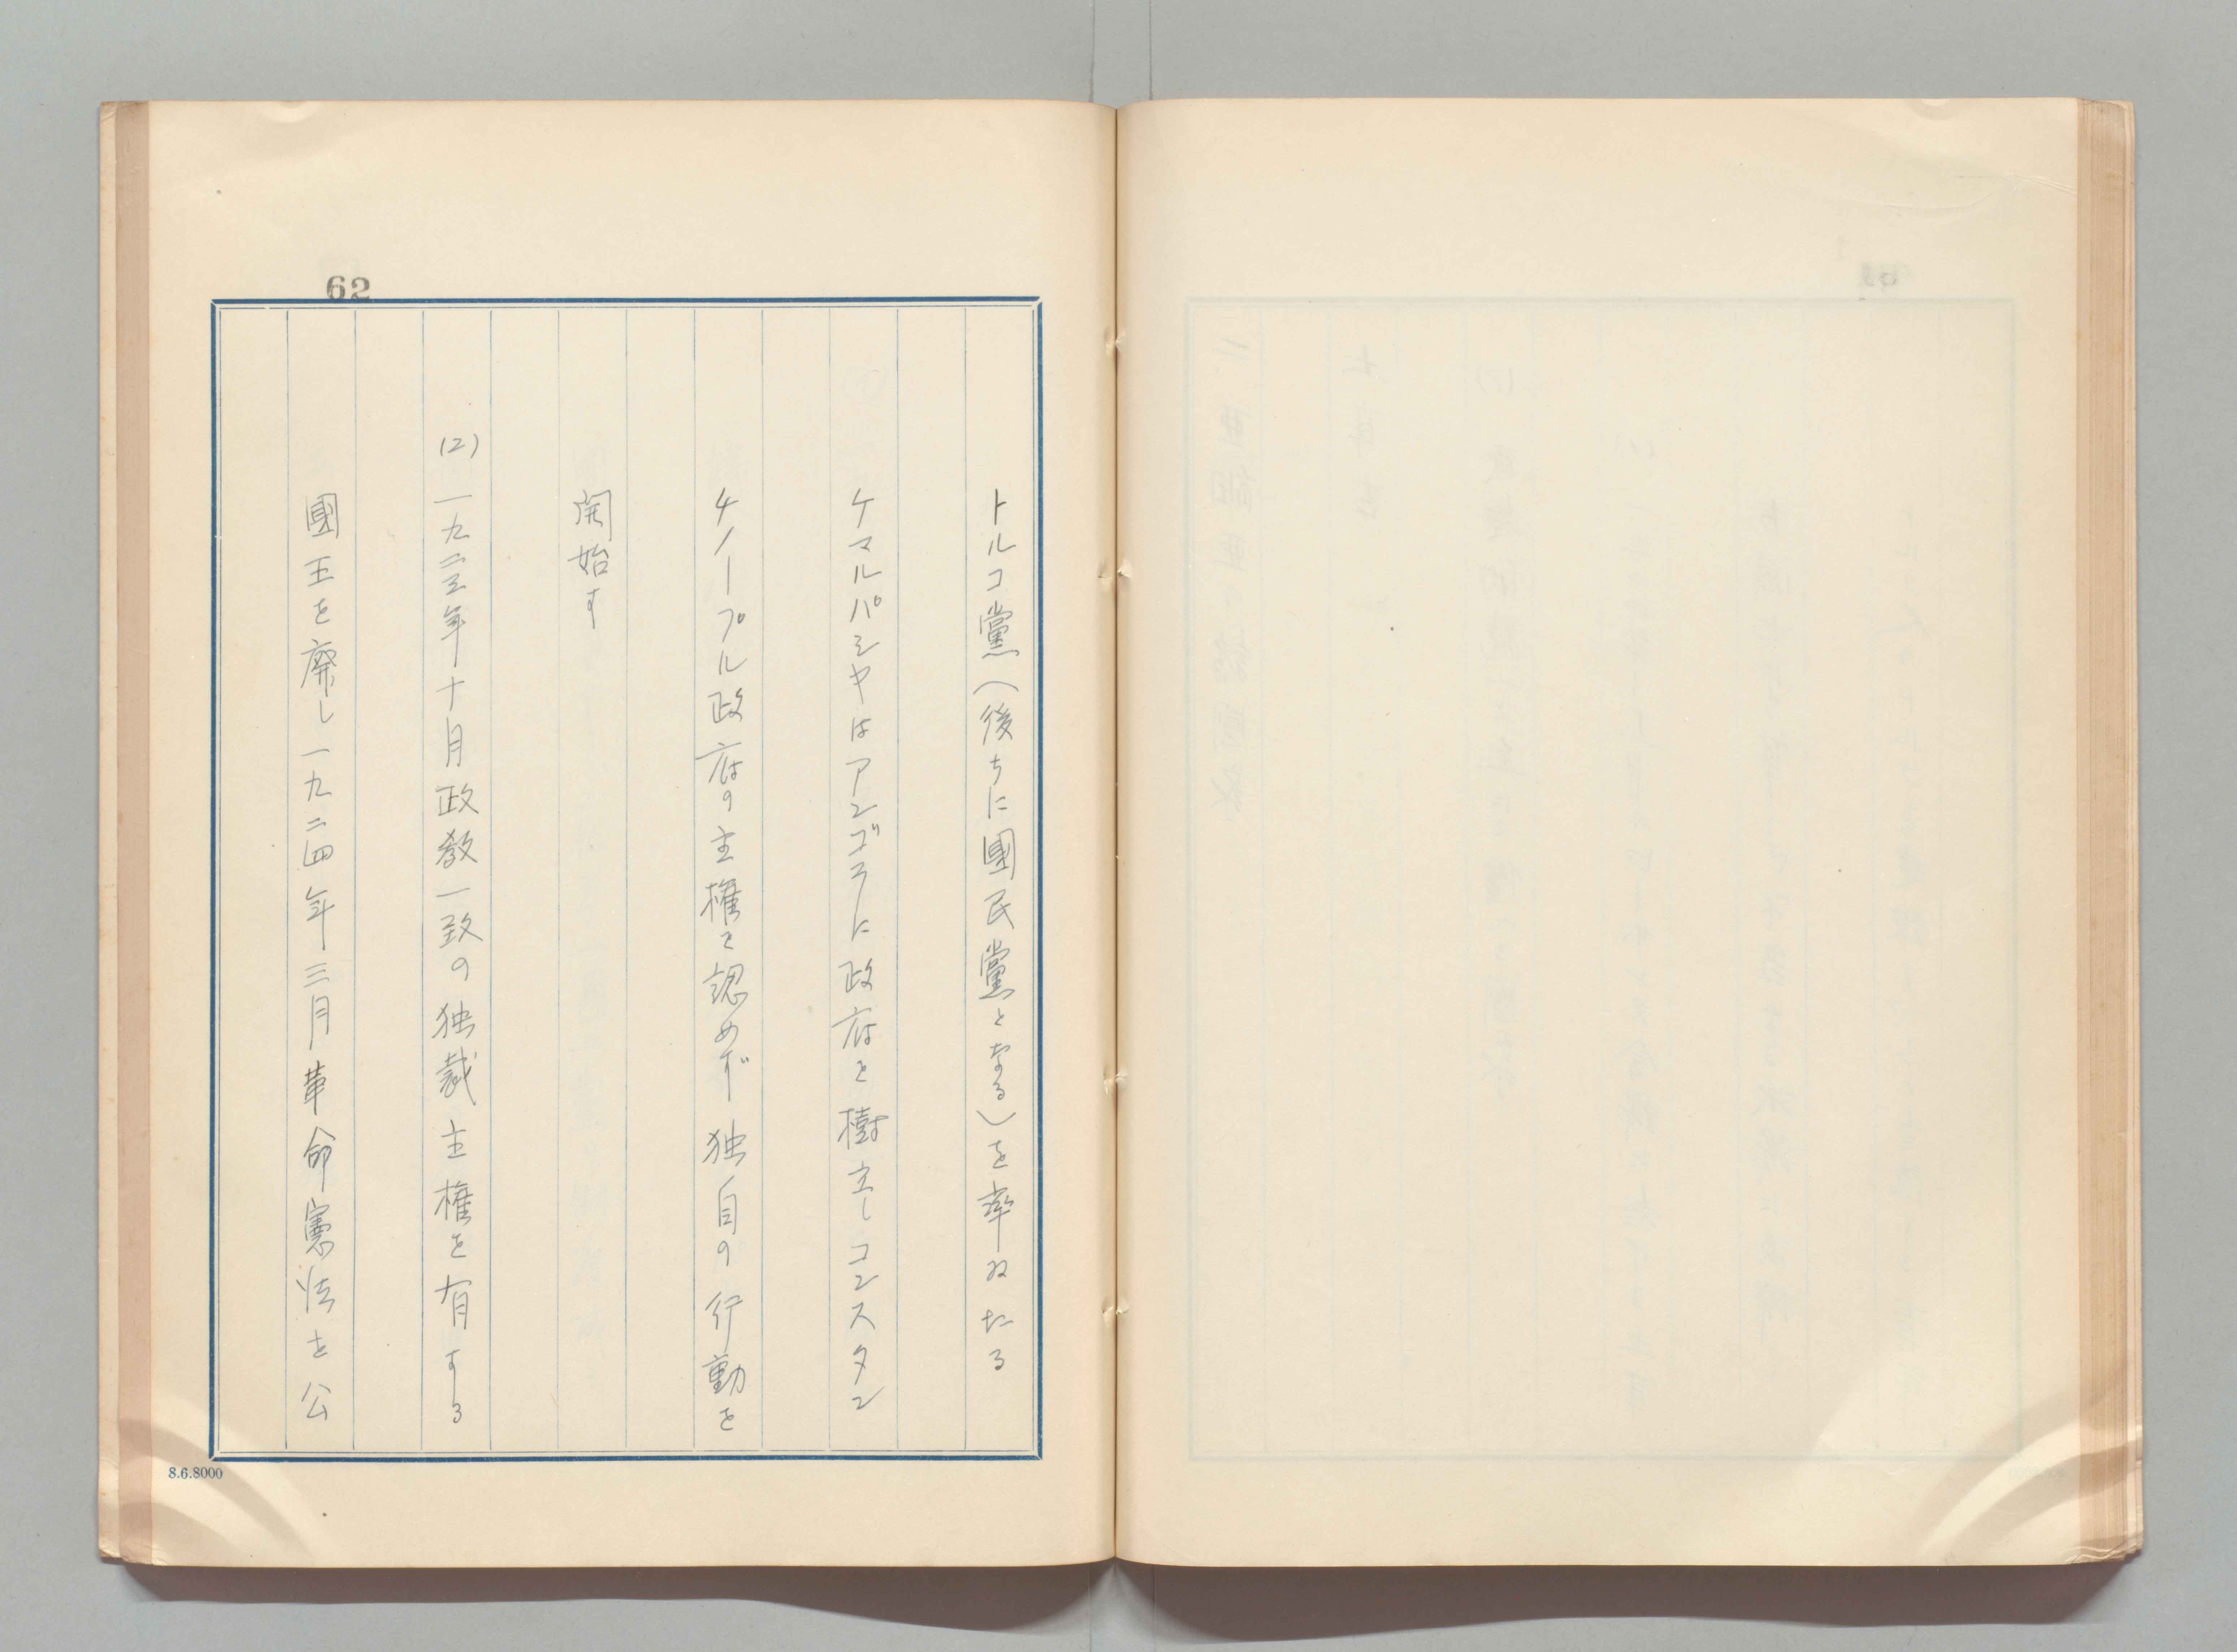 62
トルコ黨(後ちに國民黨となる)を率ゐたる
ケマルパシヤはアンゴラに政府を樹立しコンスタン
チノープル政府の主権を認めず独自の行動を
開始す
(2) 一九二三年十月政教一致の独裁主権を有する
國王を廃し一九二四年三月革命憲法を公
8.6.8000